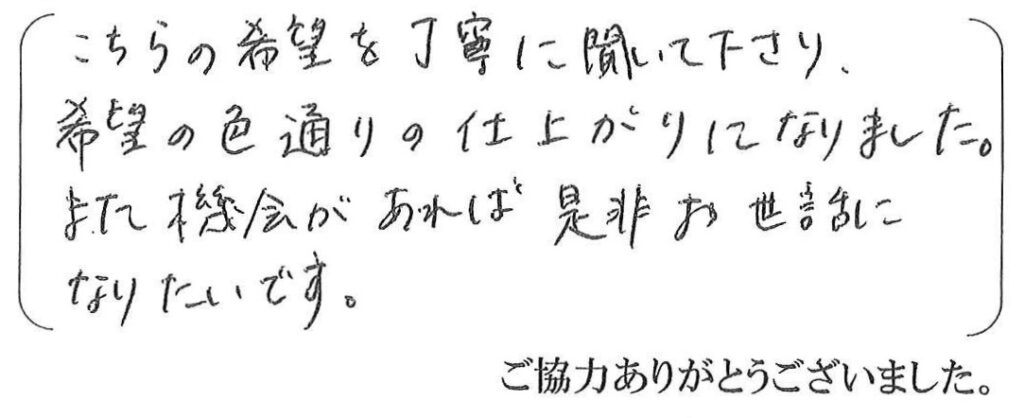 こちらの希望を丁寧に聞いて下さり、
希望の色通りの仕上がりになりました。
また機会があれば是非お世話に
なりたいです。
ご協力ありがとうございました。